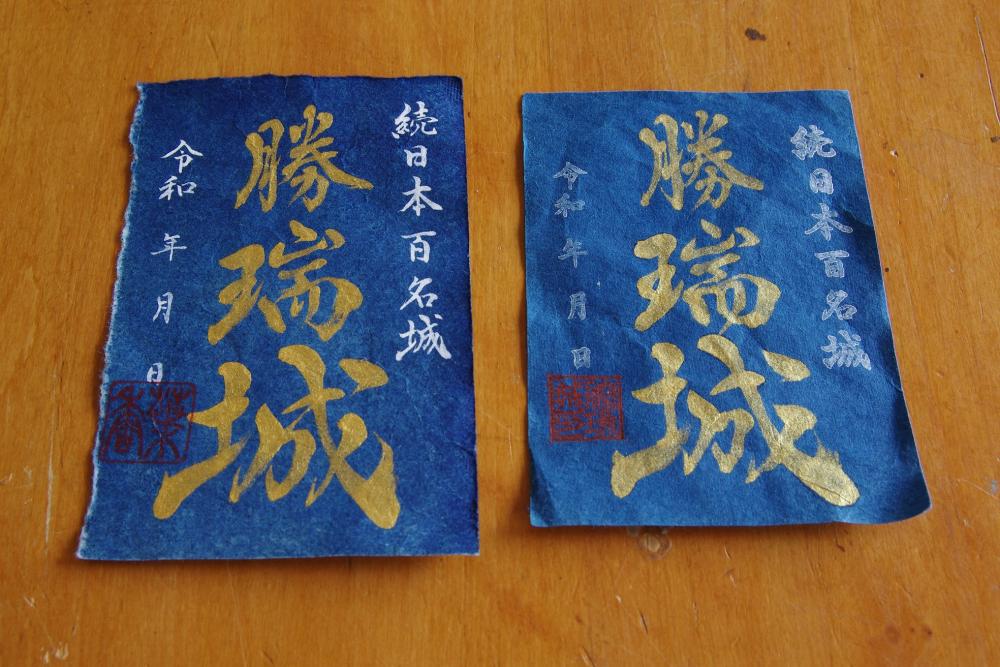 続日本百名城
勝瑞城
令和 年 月 日
続日本百名城
勝瑞城
令和 年 月 日